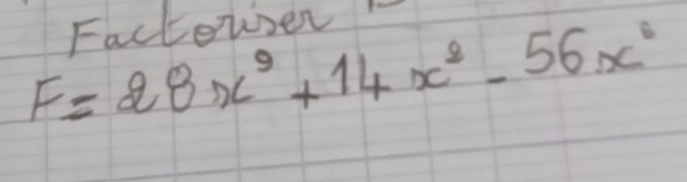 Factoriser
F = 28x⁹ + 14x² - 56x⁶